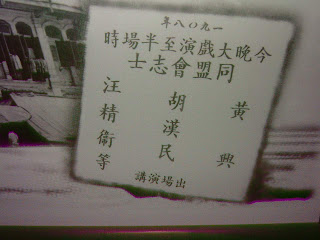 一九〇八年
今晚大戲演至半場時
同盟會志士
黃興
胡漢民
汪精衞等
出場演講